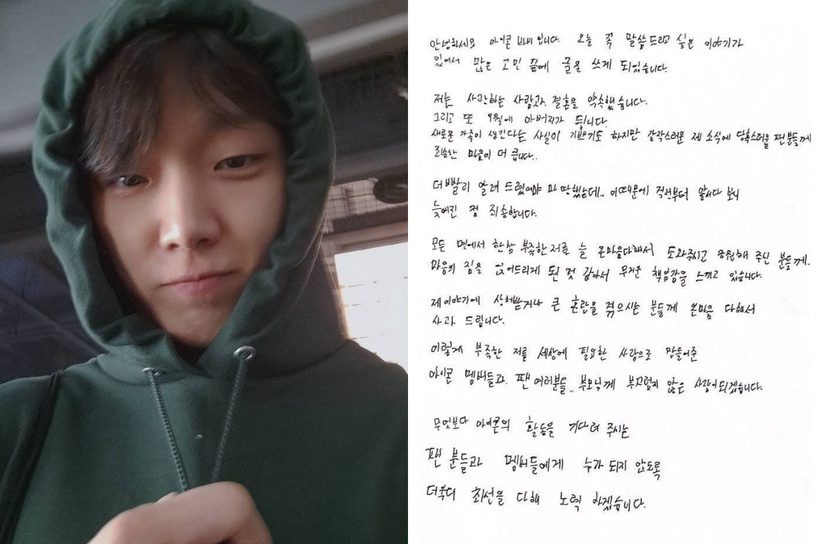 안녕하세요 아이콘 바비 입니다. 오늘 꼭 말씀드리고 싶은 이야기가
있어서 많은 고민 끝에 글을 쓰게 되었습니다.
저는 사랑하는 사람과 결혼을 약속했습니다.
그리고 또 9월에 아버지가 됩니다
새로운 가족이 생긴다는 사실이 기쁘기도 하지만 갑작스러운 제 소식에 당혹스러울 팬분들께
죄송한 마음이 더 큽니다.
더 빨리 알려 드렸어야 마땅했는데.. 이 때문에 걱정부터 앞서다 보니
늦어진 점 죄송합니다.
모든 면에서 한참 부족한 저를 늘 온마음다해서 도와주시고 응원해 주신 분들께.
마음의 짐을 얹어드리게 된 것 같아서 무거운 책임감을 느끼고 있습니다.
제이야기에 상처받거나 큰 혼란을 겪으시는 분들께 온마음 다해서
사과 드립니다.
이렇게 부족한 저를 세상에 필요한 사람으로 만들어준
아이콘 멤버들과 팬 여러분들.. 부모님께 부끄럽지 않은 사람이되겠습니다.
무엇보다 아이콘의 활동을 기다려 주시는
팬 분들과 멤버들에게 누가 되지 않도록
더욱더 최선을 다해 노력 하겠습니다.